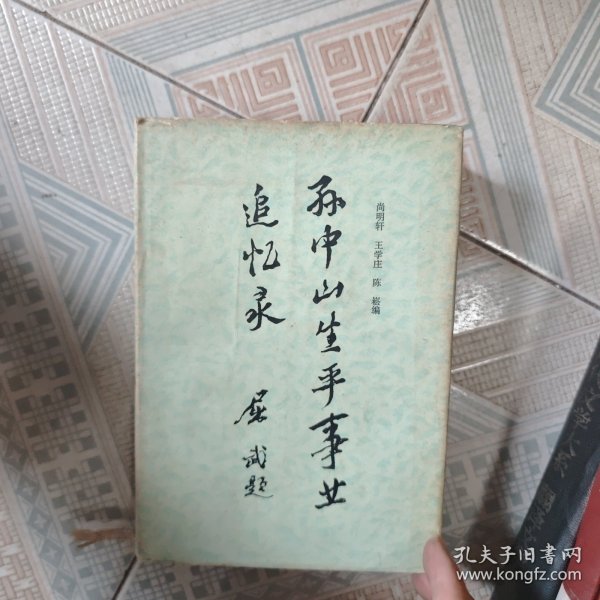 尚明轩 王学庄 陈 崧编
孙中山生平事业
追忆录
屈武题
孔夫子旧书网
www.kongfz.com